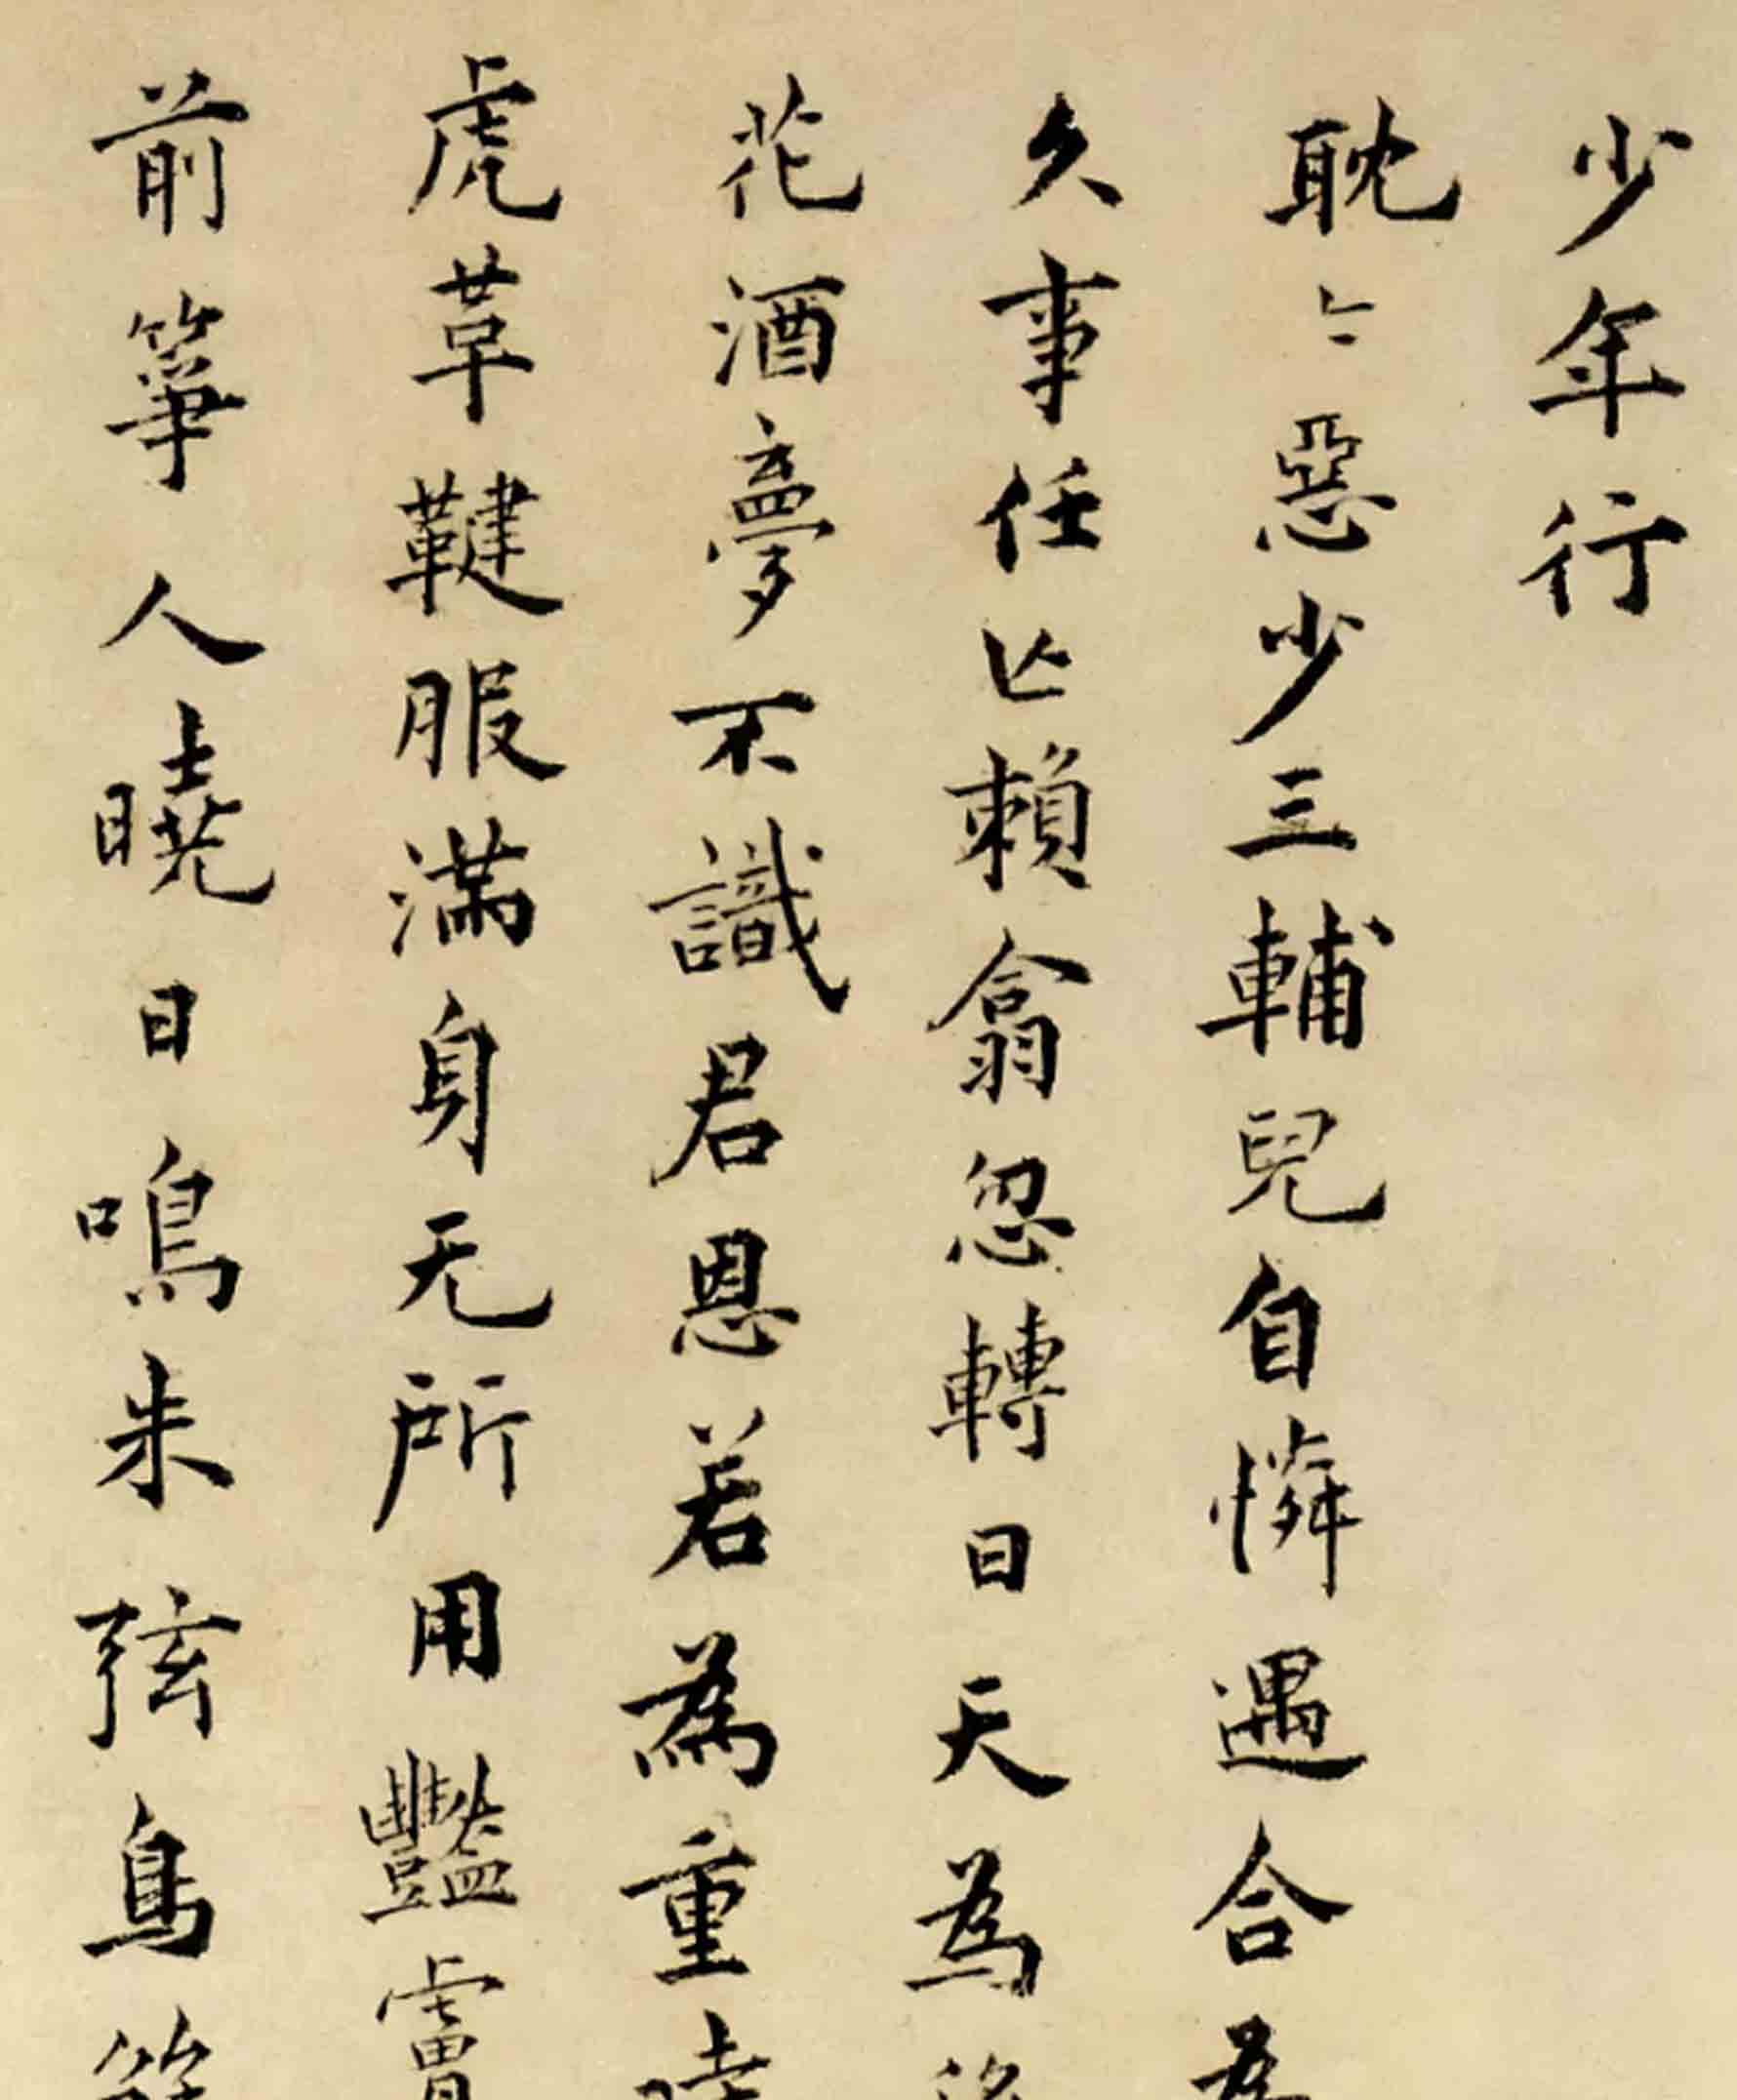 少年行
耽〻惡少三輔兒自憐遇合為
久事任亾賴翕忽轉日天為
花酒夢不識君恩若為重曉
虎革鞬服滿身无所用豔
前箏人曉日鳴朱弦鳥